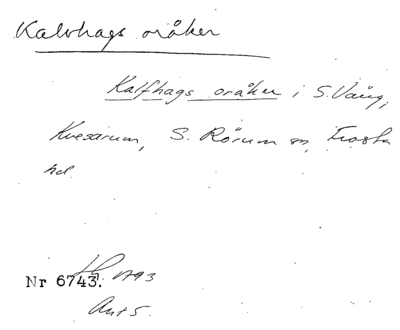 Kalvhags oråker
Kalfhags oråker i S. Vång,
Kvesarum, S. Rörum sn, Frosta
hd.
Nr 6743. 1793
Ant 5.